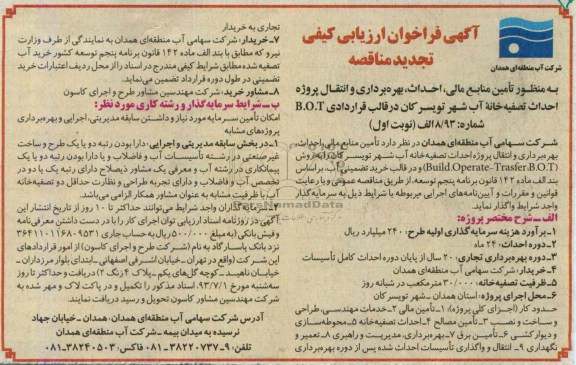 شرکت آب منطقه‌ای همدان
آگهی فراخوان ارزیابی کیفی
تجدید مناقصه
به منظور تأمین منابع مالی، احداث، بهره‌برداری و انتقال پروژه
احداث تصفیه‌خانهٔ آب شهر تویسرکان در قالب قراردادی B.O.T
شماره: ۸/۹۳ الف (نوبت اول)
شرکت سهامی آب منطقه‌ای همدان در نظر دارد تأمین منابع مالی، احداث،
بهره‌برداری و انتقال پروژه احداث تصفیه‌خانه آب شهر تویسرکان را به روش
(Build.Operate-Trasfer.B.O.T) و در قالب خرید تضمینی آب، براساس
بند الف ماده ۱۴۲ قانون برنامه پنجم توسعه، از طریق مناقصه عمومی و با رعایت
قوانین و مقررات و آیین‌نامه‌های اجرایی مربوطه با شرایط ذیل به سرمایه‌گذار
واجد شرایط واگذار نماید.
الف ـ شرح مختصر پروژه:
۱ـ برآورد هزینه سرمایه گذاری اولیه طرح: ۲۴۰ میلیارد ریال
۲ـ دوره احداث: ۲۴ ماه
۳ـ دوره بهره‌برداری تجاری: ۲۰ سال از پایان دوره احداث کامل تأسیسات
۴ـ خریدار: شرکت سهامی آب منطقه‌ای همدان
۵ـ ظرفیت تصفیه‌خانه: ۳۰/۰۰۰ مترمکعب در شبانه روز
۶ـ محل اجرای پروژه: استان همدان ـ شهر تویسرکان
حدود کار (اجزای کلی پروژه): ۱ـ تأمین مالی ۲ـ خدمات مهندسی، طراحی
و ساخت و نصب ۳ـ تأمین مصالح ۴ـ احداث تصفیه‌خانه ۵ـ محوطه‌سازی
و دیوارکشی ۶ـ تأمین برق ۷ـ بهره‌برداری، مدیریت و راهبری ۸ـ تعمیر و
نگهداری ۹ـ انتقال و واگذاری تأسیسات احداث شده پس از دوره بهره‌برداری
تجاری به خریدار
۷ـ خریدار: شرکت سهامی آب منطقه‌ای همدان به نمایندگی از طرف وزارت
نیرو که مطابق با بند الف ماده ۱۴۲ قانون برنامه پنجم توسعه کشور خرید آب
تصفیه شده مطابق شرایط کیفی مندرج در اسناد را از محل ردیف اعتبارات خرید
تضمینی در طول دوره قرارداد تضمین می‌نماید.
۸ـ مشاور خرید: شرکت مهندسین مشاور طرح و اجرای کاسون
ب ـ شرایط سرمایه‌گذار و رشته کاری مورد نظر:
امکان تأمین سرمایه مورد نیاز و داشتن سابقه مدیریتی، اجرایی و بهره‌برداری
پروژه‌های مشابه
۱ـ در بخش سابقه مدیریتی و اجرایی: دارا بودن رتبه دو یا یک طرح و ساخت
غیرصنعتی در رشته تأسیسات آب و فاضلاب و یا دارا بودن رتبه دو یا یک
پیمانکاری در رشته آب و معرفی یک مشاور ذیصلاح دارای رتبه یک یا دو در
تخصص آب و فاضلاب و دارای تجربه طراحی و نظارت حداقل دو تصفیه‌خانه
آب با ظرفیت مشابه به عنوان مشاور همکار الزامی می‌باشد.
سرمایه‌گذاران واجد شرایط می‌توانند حداکثر تا ۱۰ روز از تاریخ انتشار این
آگهی در روزنامه اسناد ارزیابی توان اجرای کار را با در دست داشتن معرفی‌نامه
و فیش بانکی (به مبلغ ۵۰۰/۰۰۰ ریال به حساب جاری
نزد بانک پاسارگاد به نام (شرکت طرح و اجرای کاسون) از امور قراردادهای
این شرکت (واقع در تهران ـ خیابان اشرفی اصفهانی ـ ابتدای بلوار مرزداران ـ
خیابان ناهید ـ کوچه گل‌های یکم ـ پلاک ۴ زنگ ۲) دریافت و حداکثر تا روز
سه‌شنبه مورخ ۹۳/۷/۱ اسناد مذکور را تکمیل و در پاکت لاک و مهر شده به
شرکت مهندسین مشاور کاسون تحویل و رسید دریافت نمایند.
آدرس شرکت سهامی آب منطقه‌ای همدان: همدان ـ خیابان جهاد
نرسیده به میدان بیمه ـ شرکت آب منطقه‌ای همدان
تلفن: ۹ـ۳۸۲۲۰۷۳۷ـ۰۸۱ فاکس: ۳۸۲۴۰۵۰۳ـ۰۸۱